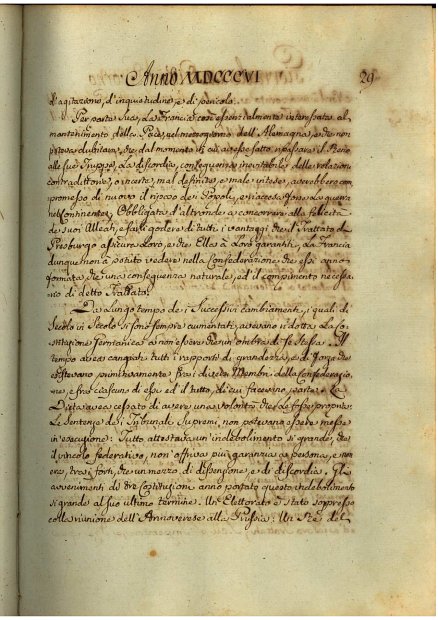 Anno MDCCCVI
29
d'agitazione, d'inquietudine, e di pericolo.
Per parte sua, la Francia così essenzialmente interessata al
mantenimento della Pace, nel mezzogiorno dell'Alemagna, e che non
poteva dubitare, che dal momento in cui avesse fatto ripassare il Reno
alle sue Truppe, la discordia, conseguenza inevitabile delle relazioni
contradittorie, o incerte, mal definite, e male intese, avrebbero com-
promesso di nuovo il riposo dei Popoli, e riaccesa forse la guerra
nel Continente; Obbligata d'altronde a concorrere alla felicità
de suoi Alleati, e farli godere di tutti i vantaggi che il Trattato di
Presburgo assicura loro, e che Ella à loro garantiti, la Francia
dunque non à potuto vedere nella Confederazione che essi anno
formata, che una conseguenza naturale, ed il compimento necessa-
rio di detto Trattato.
Da lungo tempo dei successivi cambiamenti, i quali di
Secolo in Secolo si sono sempre aumentati, avevano ridotta la Co-
stituzione Germanica a non essere che un'ombra di se stessa. Il
tempo aveva cangiati tutti i rapporti di grandezza, e di forza che
esistevano primitivamente fra i diversi Membri della Confederazio-
ne, e fra ciascuno di essi ed il tutto, di cui facevano parte. La
Dieta aveva cessato di avere una volontà che le fosse propria.
Le Sentenze dei Tribunali Supremi, non potevano essere messe
in esecuzione: Tutto attestava un indebolimento sì grande, che
il vincolo federativo, non offriva più garanzia a persona, e non
era, tra i forti, che un mezzo di dissenzione, e di discordia. Gli
avvenimenti di tre Coalizioni anno portato questo indebolimento
sì grande al suo ultimo termine. Un'Elettorato è stato soppresso
colla riunione dell'Annoverese alla Prussia: Un Re del